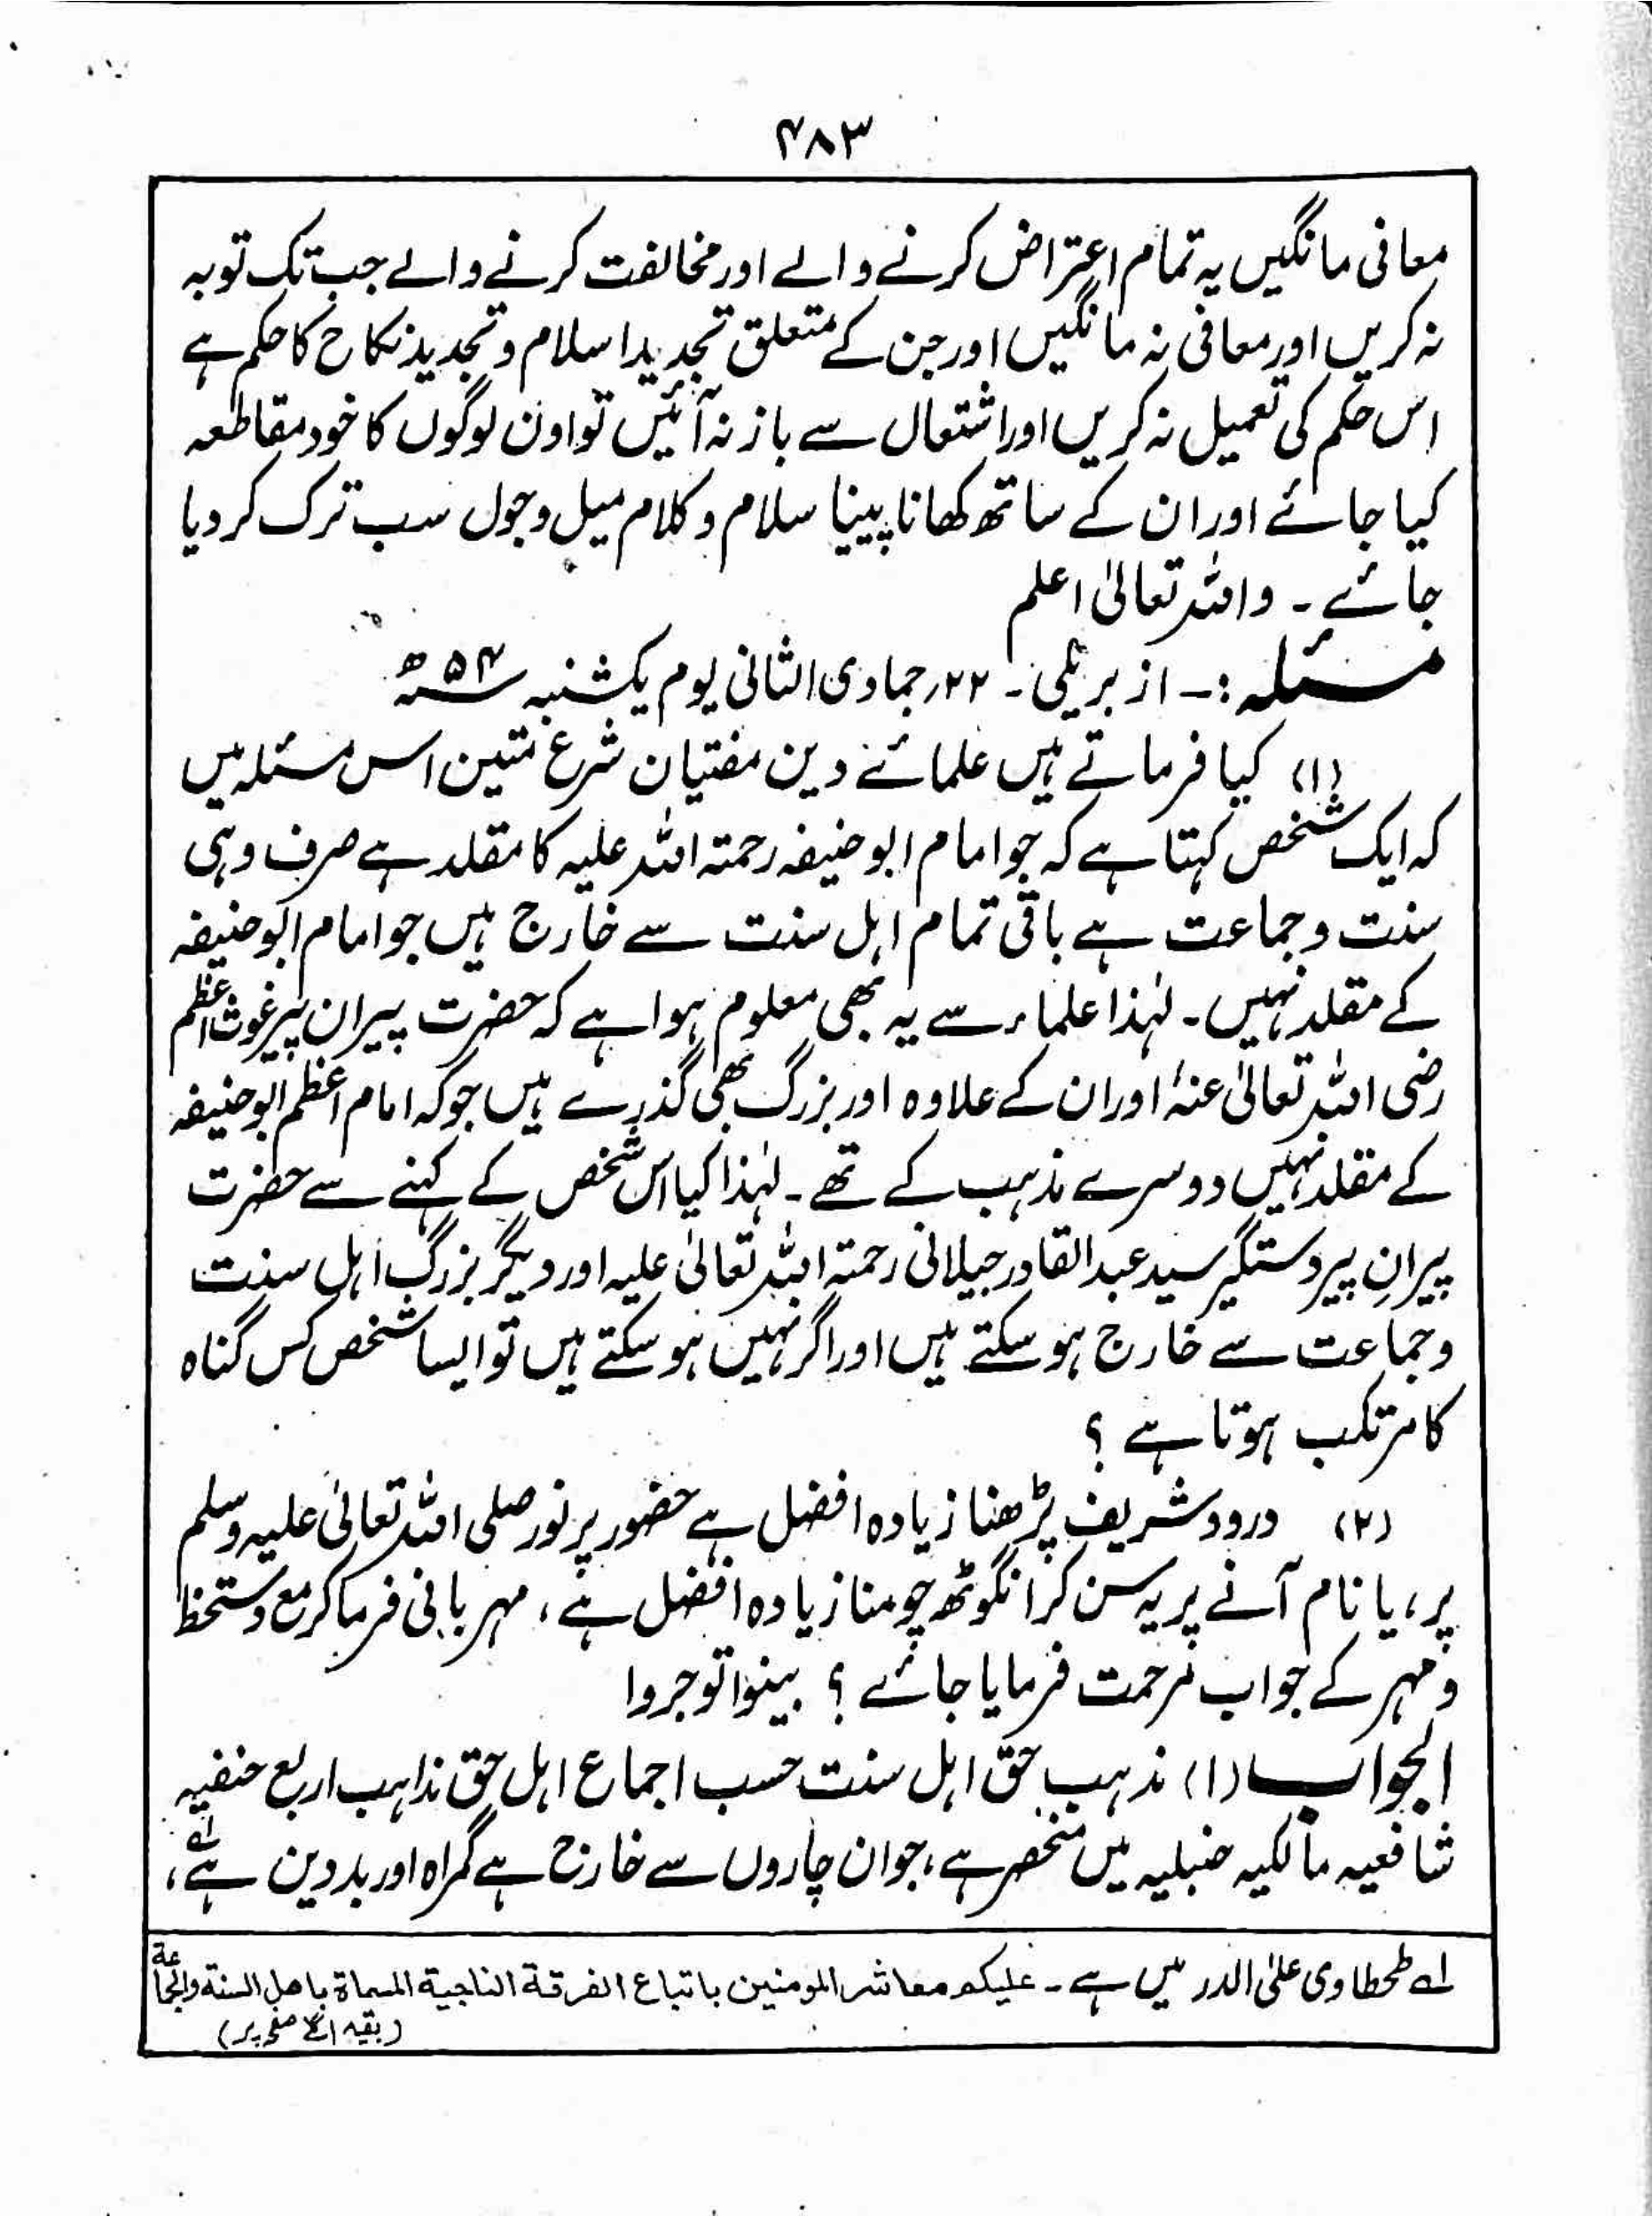 ۴۸۳
معافی مانگیں یہ تمام اعتراض کرنے والے اور مخالفت کرنے والے جب تک توبہ
نہ کریں اور معافی نہ مانگیں اور جن کے متعلق تجدید اسلام و تجدید نکاح کا حکم ہے
اس حکم کی تعمیل نہ کریں اور اشتعال سے باز نہ آئیں تو اون لوگوں کا خود مقاطعہ
کیا جائے اور ان کے ساتھ کھانا پینا سلام و کلام میل و جول سب ترک کر دیا
جائے ۔ واللہ تعالیٰ اعلم
مسئلہ :۔ از بریلی ۔ ۲۲؍ جمادی الثانی یوم یکشنبہ سنہ ۵۴ھ
(۱) کیا فرماتے ہیں علمائے دین مفتیان شرع متین اس مسئلہ میں
کہ ایک شخص کہتا ہے کہ جو امام ابو حنیفہ رحمتہ اللہ علیہ کا مقلد ہے صرف وہی
سنت و جماعت ہے باقی تمام اہل سنت سے خارج ہیں جو امام ابو حنیفہ
کے مقلد نہیں ۔ لہٰذا علماء سے یہ بھی معلوم ہوا ہے کہ حضرت پیران پیر غوث اعظم
رضی اللہ تعالیٰ عنہٗ اور ان کے علاوہ اور بزرگ بھی گذرے ہیں جو کہ امام اعظم ابو حنیفہ
کے مقلد نہیں دوسرے مذہب کے تھے ۔ لہٰذا کیا اس شخص کے کہنے سے حضرت
پیرانِ پیر دستگیر سید عبدالقادر جیلانی رحمتہ اللہ تعالیٰ علیہ اور دیگر بزرگ اہل سنت
و جماعت سے خارج ہو سکتے ہیں اور اگر نہیں ہو سکتے ہیں تو ایسا شخص کس گناہ
کا مرتکب ہوتا ہے ؟
(۲) درود شریف پڑھنا زیادہ افضل ہے حضور پر نور صلی اللہ تعالیٰ علیہ وسلم
پر ، یا نام آنے پر یہ سن کر انگوٹھ چومنا زیادہ افضل ہے ، مہربانی فرما کر مع دستخط
و مہر کے جواب مرحمت فرمایا جائے ؟ بینوا توجروا
الجواب (۱) مذہب حق اہل سنت حسب اجماع اہل حق مذاہب اربع حنفیہ
شافعیہ مالکیہ حنبلیہ میں منحصر ہے ، جو ان چاروں سے خارج ہے گمراہ اور بد دین ہے ،لہ
لہ طحطاوی علی الدر میں ہے ۔ علیکم معاشر المومنین باتباع الفرقة الناجیة المسماة باھل السنة والجماعة
(بقیہ اگلے صفحہ پر)